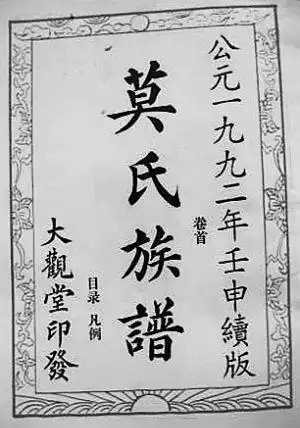 公元一九九二年壬申續版
卷首
莫氏族譜
目录 凡例
大觀堂印發